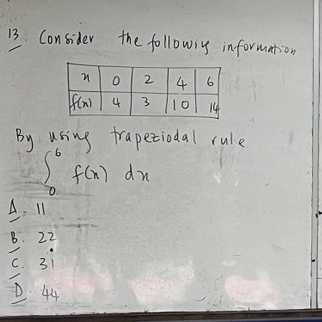 13. Consider the following information
x 0 2 4 6
f(x) 4 3 10 14
By using trapeziodal rule
∫₀⁶ f(x) dx
A. 11
B. 22
C. 31
D. 44